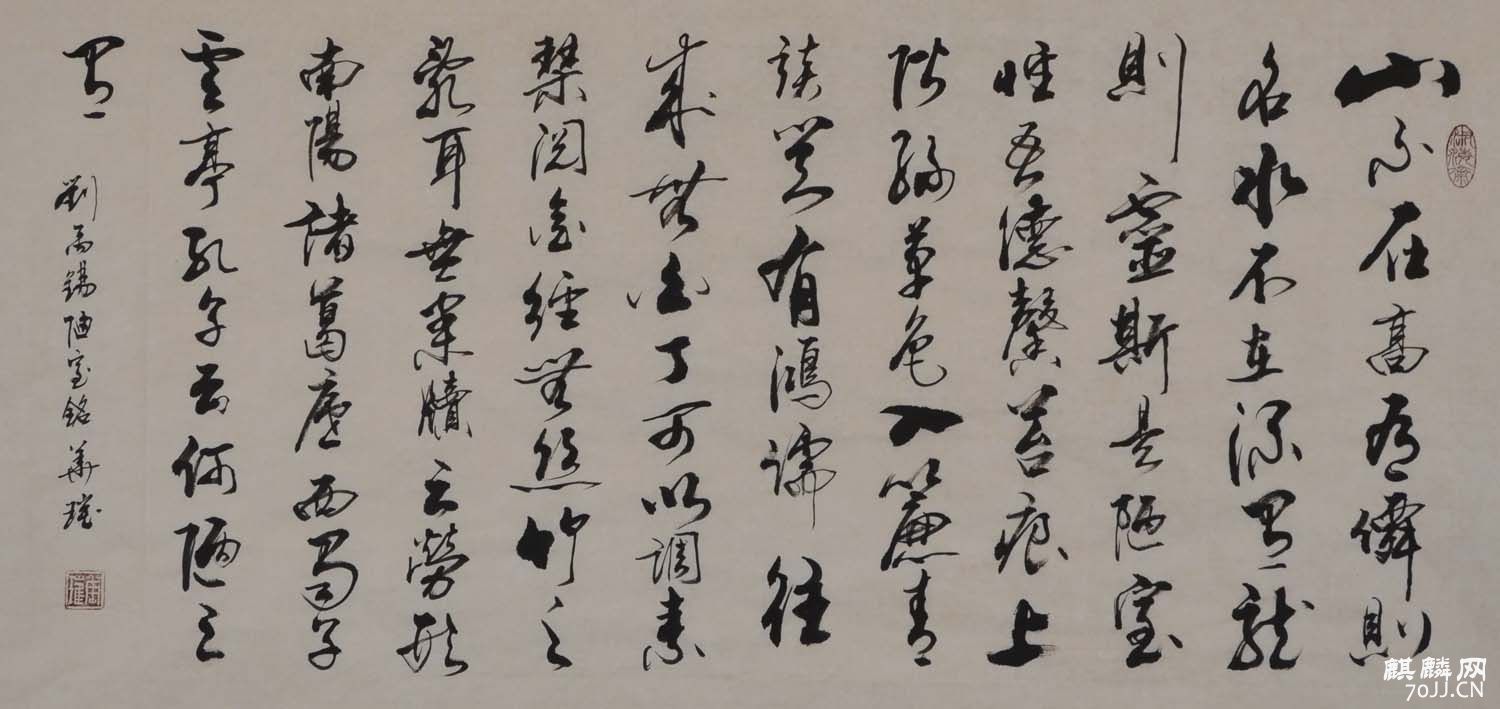 山不在高有僊則
名水不在深有龍
則靈斯是陋室
惟吾德馨苔痕上
階綠草色入簾青
談笑有鴻儒往
來無白丁可以調素
琴閱金經無絲竹之
亂耳無案牘之勞形
南陽諸葛廬西蜀子
雲亭孔子云何陋之
有
劉禹錫陋室銘華
麒麟网
70JJ.CN